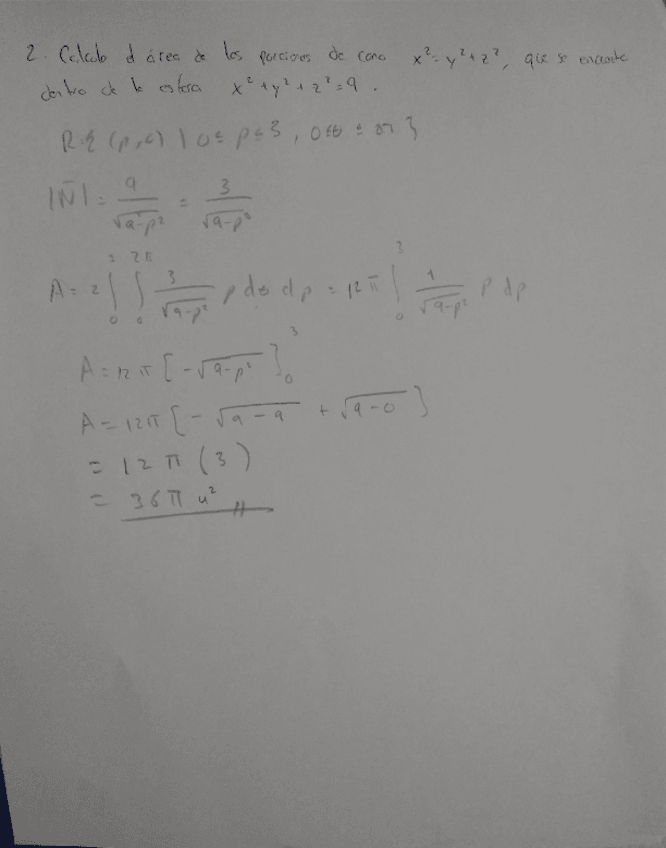 2. Calcula el área de las porciones de cono x² = y² + z², que se encuentre
dentro de la esfera x² + y² + z² = 9.
R = { (ρ, θ) | 0 ≤ ρ ≤ 3, 0 ≤ θ ≤ 2π }
|N| = 9 / √(9-ρ²) = 3 / √(9-ρ²)
A = 2 ∫₀³ ∫₀^{2π} 3/√(9-ρ²) ρ dθ dρ = 12π ∫₀³ 1/√(9-ρ²) ρ dρ
A = 12π [ -√(9-ρ²) ]₀³
A = 12π [ -√(9-9) + √(9-0) ]
= 12π (3)
= 36π u²